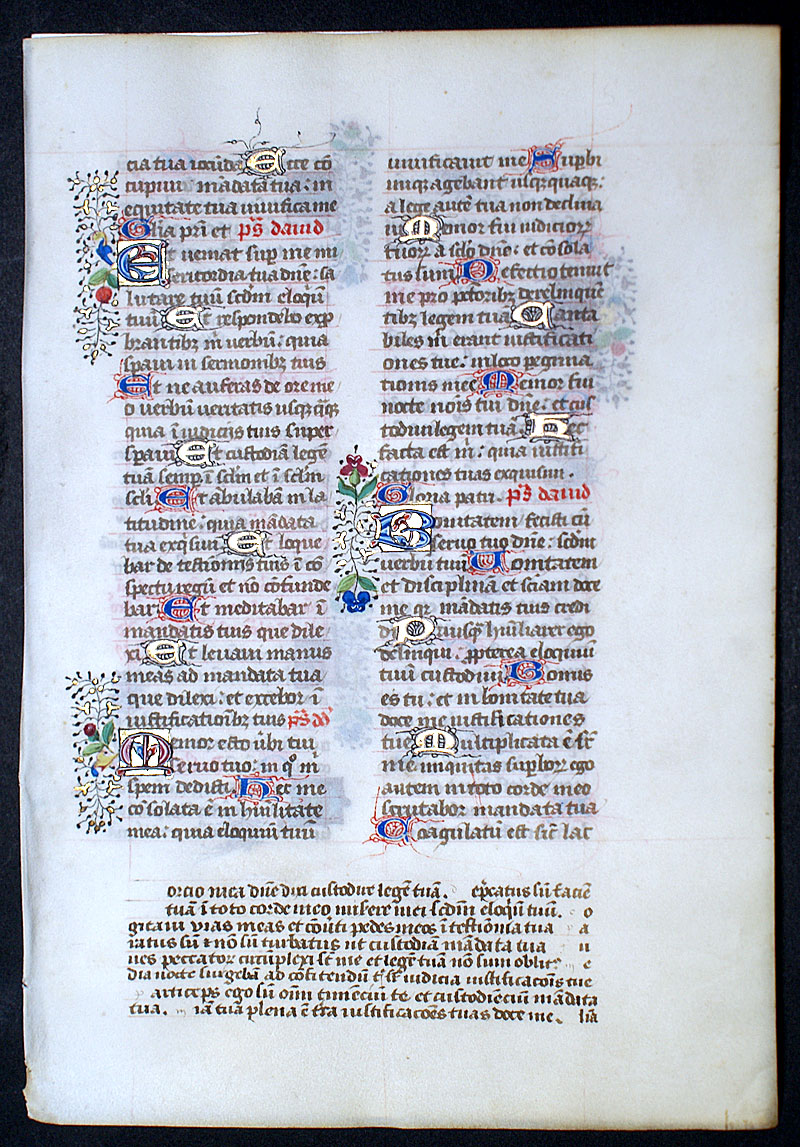 cia tua iocūda Ecce cō
cupiui mādata tua: in
equitate tua uiuifica me
Glia pri et ps dauid
Et ueniat sup me mi
sericordia tua dn̄e: sa
lutare tuū scdm eloqūi
tuū Et respondebo exp
brantibz m uerbū: quia
spaui in sermonibz tuis
Et ne auferas de ore me
o uerbū ueritatis usqz
quia ī iudiciis tuis super
spaui Et custodiā legē
tuā semp ī sclm et ī sclm
scli Et abulabā in la
titudine: quia mādata
tua exqsiui Et loque
bar de testioniis tuis ī cō
spectu regū et nō cōfunde
bar Et meditabar ī
mandatis tuis que dile
xi Et leuaui manus
meas ad mandata tua
que dilexi: et excebor ī
iustificationibz tuis ps dd
Memor esto ubi tui
seruo tuo: in qo m
spem dedisti Hec me
cōsolata ē in huilitate
mea: quia eloquiū tuū
uiuificauit me Supbi
iniq agebant usqz quaqz:
a lege autē tua non declina
ui Memor fui iudiciorz
tuorz a sclo dn̄e: et cōsola
tus sum Defectio tenuit
me pro pctoribz derelinquē
tibz legem tuā Canta
biles m erant iustificati
ones tue: in loco pegrina
tionis mee Memor fui
nocte nois tui dn̄e: et cus
todiui legem tuā Hec
facta est m: quia iustifi
cationes tuas exquisiui.
Gloria patri. ps dauid
Bonitatem fecisti cū
seruo tuo dn̄e: scdm
uerbū tuū Bonitatem
et disciplinā et sciam doce
me qr mādatis tuis credi
di Priusq huīliarer ego
deliqui: ppterea eloquiū
tuū custodiui Bonus
es tu: et in bonitate tua
doce me iustificationes
tuas Multiplicata ē sr
me iniquitas supborz ego
autem in toto corde meo
scrutabor mandata tua
Coagulatū est sic lac
orcio mea dn̄e dixi custodire legē tuā. epcatus sū faciē
tuā ī toto corde meo misere mei scdm eloqūi tuū. o
gitaui uias meas et conūti pedes meos ī testionia tua a
ratus sū et nō sū turbatus ut custodiā mādata tua u
nes peccatorz cūcuplexi st me et legē tuā nō sum oblits e
dia nocte surgebā ad cōfitendū t sr iudicia iustificacois tue
articeps ego sū oīm timenciū te et custodienciū mādata
tua. ia tua plena ē tra iustificacoēs tuas doce me. lia